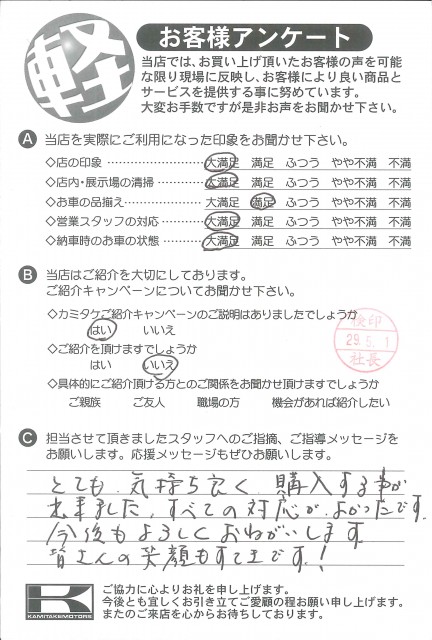 軽
お客様アンケート
当店では、お買い上げ頂いたお客様の声を可能
な限り現場に反映し、お客様により良い商品と
サービスを提供する事に努めています。
大変お手数ですが是非お声をお聞かせ下さい。
A 当店を実際にご利用になった印象をお聞かせ下さい。
◇店の印象 …………………… 大満足 満足 ふつう やや不満 不満
◇店内・展示場の清掃………… 大満足 満足 ふつう やや不満 不満
◇お車の品揃え………………… 大満足 満足 ふつう やや不満 不満
◇営業スタッフの対応………… 大満足 満足 ふつう やや不満 不満
◇納車時のお車の状態………… 大満足 満足 ふつう やや不満 不満
B 当店はご紹介を大切にしてあります。
ご紹介キャンペーンについてお聞かせ下さい。
◇カミタケご紹介キャンペーンのご説明はありましたでしょうか
はい いいえ
◇ご紹介を頂けますでしょうか
はい いいえ
◇具体的にご紹介頂ける方とのご関係をお聞かせ頂けますでしょうか
ご親族 ご友人 職場の方 機会があれば紹介したい
検印
29.5.1
社長
C 担当させて頂きましたスタッフへのご指摘、ご指導メッセージを
お願いします。応援メッセージもぜひお願いします。
とても、気持ち良く 購入する事が
出来ました。すべての対応が、よかったです。
今後もよろしくおねがいします。
皆さんの笑顔もすてきです!
K
KAMITAKEMOTORS
ご協力に心よりお礼を申し上げます。
今後とも宜しくお引き立てご愛顧の程お願い申し上げます。
またのご来店を心からお待ちしております。